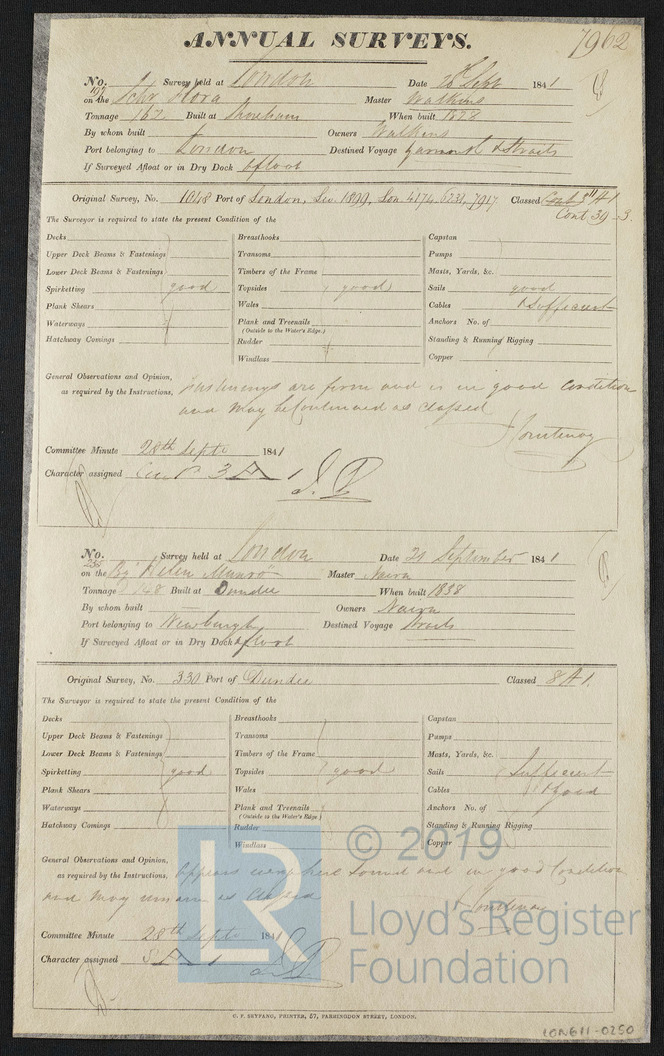 ANNUAL SURVEYS.
7962
No. 197 Survey held at London Date 20 Sept 1841
on the Schr Flora Master Watkins
Tonnage 162 Built at Shoreham When built 1828
By whom built Owners Watkins
Port belonging to London Destined Voyage & Straits
If Surveyed Afloat or in Dry Dock Afloat
Original Survey, No. 1048 Port of London, 1899, Lon. 4174, 6732, 7917 Classed
Cont 39-3.
The Surveyor is required to state the present Condition of the
Decks Breasthooks Capstan
Upper Deck Beams & Fastenings Transoms Pumps
Lower Deck Beams & Fastenings Timbers of the Frame Masts, Yards, &c.
Spirketting good Topsides good Sails good
Plank Shears Wales Cables & Sufficient
Waterways Plank and Treenails Anchors No. of
(Outside to the Water's Edge.)
Hatchway Comings Rudder Standing & Running Rigging
Windlass Copper
General Observations and Opinion, Fastenings are firm and is in good condition
as required by the Instructions, and may be Continued as Classed
J Courtenay
Committee Minute 28th Septr 1841
Character assigned Cont 3 A 1
No. 255 Survey held at London Date 21 September 1841
on the Bg Helen Munro Master Nairn
Tonnage 148 Built at Dundee When built 1838
By whom built Owners Nairn
Port belonging to Newburgh Destined Voyage Straits
If Surveyed Afloat or in Dry Dock Afloat
Original Survey, No. 330 Port of Dundee Classed 8 A 1.
The Surveyor is required to state the present Condition of the
Decks Breasthooks Capstan
Upper Deck Beams & Fastenings Transoms Pumps
Lower Deck Beams & Fastenings Timbers of the Frame Masts, Yards, &c.
Spirketting good Topsides good Sails Sufficient
Plank Shears Wales Cables & good
Waterways Plank and Treenails Anchors No. of
(Outside to the Water's Edge.)
Hatchway Comings Rudder Standing & Running Rigging
Windlass Copper
General Observations and Opinion, Appears everywhere Sound and in good Condition
as required by the Instructions,
and may remain as Classed
J Courtenay
Committee Minute 28th Septr 1841
Character assigned 8 A 1
LR
© 2019
Lloyd's Register
Foundation
C. F. SEYFANG, PRINTER, 57, FARRINGDON STREET, LONDON.
LON611-0250